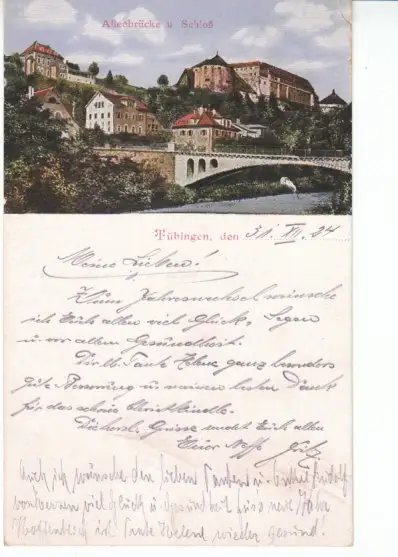 Alleebrücke u. Schloß
Tübingen, den 31. XII. 24
Meine Lieben!
Zum Jahreswechsel wünsche
ich Euch allen viel Glück, Segen
u. vor allem Gesundheit.
Dir lb. Tante Helene ganz besonders
gute Besserung u. meinen besten Dank
für das schöne Christkindle.
Die herzl. Grüsse sendet Euch allen
Euer Neffe Fritz
Auch ich wünsche den lieben Tanten u. Onkel Rudolf
von Herzen viel Glück u. Gesundheit fürs neue Jahr
Hoffentlich ist Tante Helene wieder gesund!